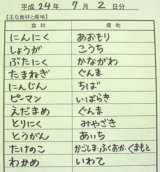 平成 24年 7月 2日分
【主な食材と産地】
食材 産地
にんにく あおもり
しょうが こうち
ぶたにく かながわ
たまねぎ ぐんま
にんじん ちば
ピーマン いばらき
えだまめ ぐんま
とりにく みやざき
とうがん あいち
たけのこ かごしま・ふくおか・ぐまもと
わかめ いわて